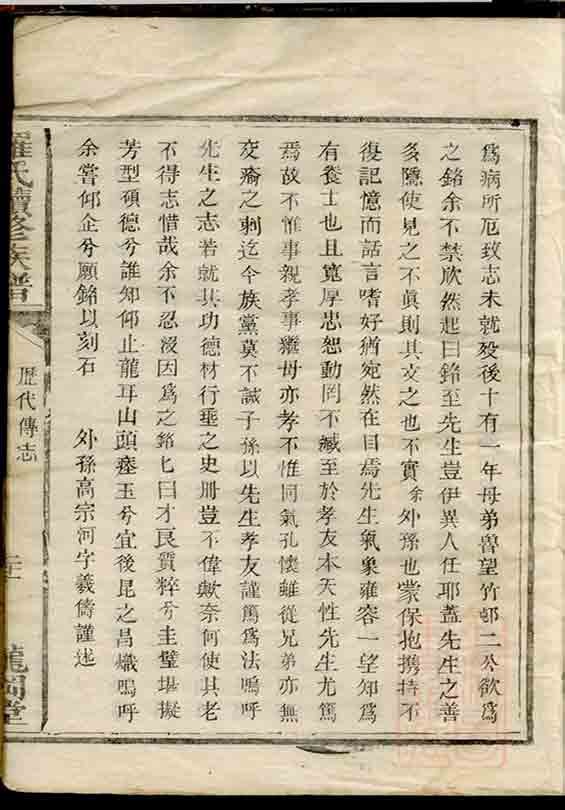 爲病所厄致志未就殁後十有一年母弟魯望竹邨二公欲爲
之銘余不禁欣然起曰銘至先生豈伊異人任耶蓋先生之善
多隱使見之不眞則其文之也不實余外孫也蒙保抱携持不
復記憶而話言嗜好猶宛然在目焉先生氣象雍容一望知爲
有養士也且寬厚忠恕動罔不臧至於孝友本天性先生尤篤
焉故不惟事親孝事繼母亦孝不惟同氣孔懷雖從兄弟亦無
交瘉之刺迄今族黨莫不誡子孫以先生孝友謹篤爲法嗚呼
先生之志若就其功德材行垂之史册豈不偉歟奈何使其老
不得志惜哉余不忍沒因爲之銘匕曰才良質粹兮圭璧堪擬
芳型碩德兮誰知仰止龍耳山頭瘞玉兮宜後昆之昌熾嗚呼
余嘗仰企兮願銘以刻石
外孫高宗河字羲儔謹述
羅氏續修族譜
歷代傳志
龍岡堂